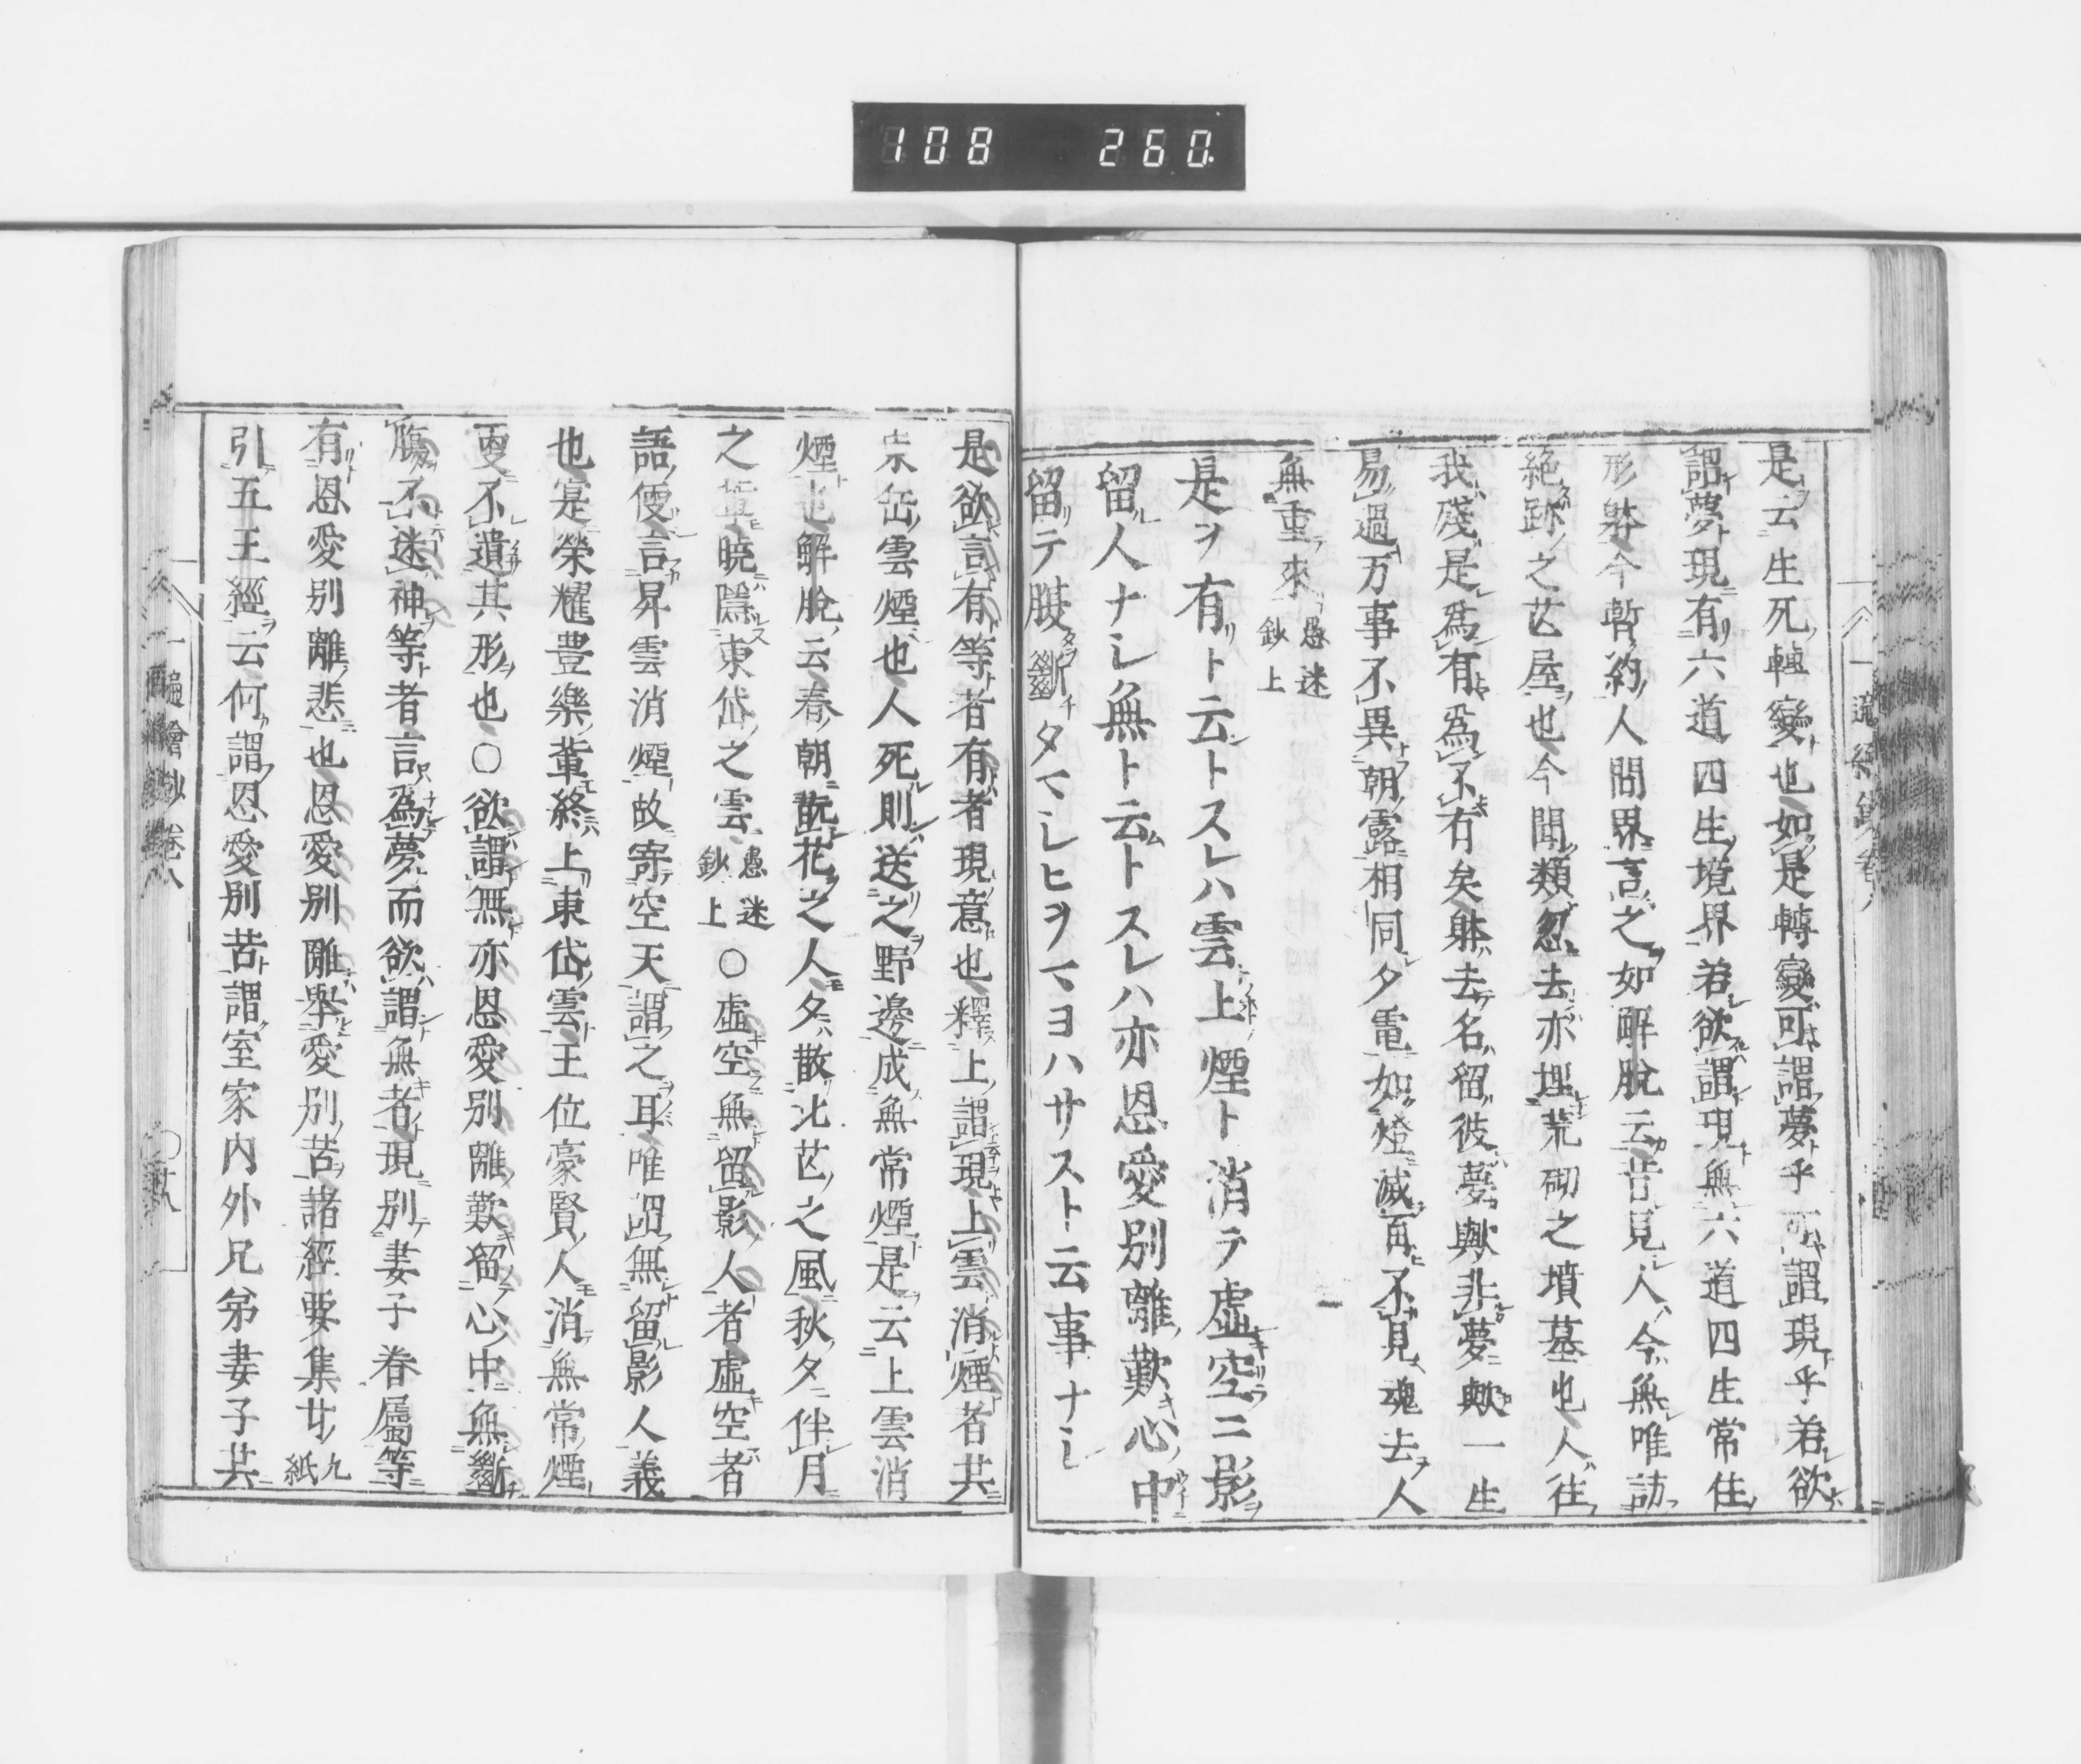 108 260
是云生死轉變也如是轉變可謂夢乎可謂現乎若欲
謂夢現有六道四生境界若欲謂現無六道四生常住
形躰今暫約人間界言之如解脫云昔見人今無唯訪
絕跡之芯屋也今聞類忽去亦埋荒砌之墳墓也人往
我殘是爲有爲不有矣躰去名留彼夢歟非夢歟一生
易過万事不異朝露相同夕電如燈滅再不見魂去人
無重來
愚迷
鈔上
是ヲ有ト云トスレハ雲上煙ト消テ虛空ニ影
留人ナシ無ト云トスレハ亦恩愛別離歎心中
留テ膓斷タマシヒヲマヨハサスト云事ナシ
是欲言有等者有者現意也釋上謂現上雲消煙者共
宗岳雲煙也人死則送之野邊成無常煙是云上雲消
煙也解脫云春朝翫花之人夕散北芒之風秋夕伴月
之 曉隱東岱之雲
愚迷
鈔上
○虛空無留影人者虛空者
語便言昇雲消煙故寄空天謂之耳唯謂無留影人義
也寔榮耀豊樂輩終上東岱雲王位豪賢人消無常煙
更不遺其形也○欲謂無亦恩愛別離歎留心中無斷
膓不迷神等者言爲夢而欲謂無者現別妻子眷屬等
有恩愛別離悲也恩愛別離擧愛別苦諸經要集廿
九
紙
引五王經云何謂恩愛別苦謂室家內外兄弟妻子共
卷八